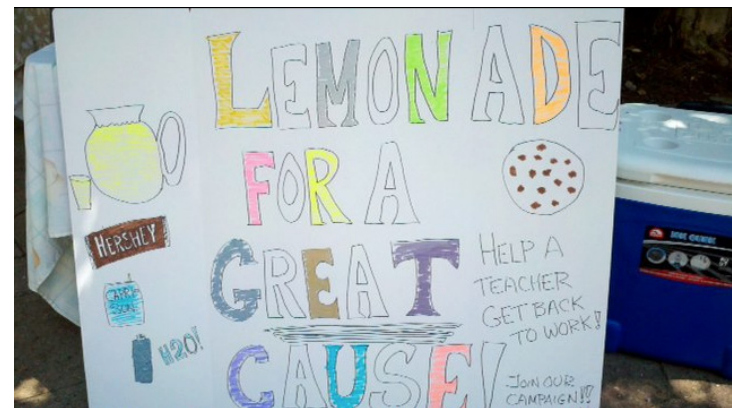 LEMONADE
FOR A
GREAT
CAUSE!
HERSHEY
H2O!
HELP A
TEACHER
GET BACK
TO WORK!
JOIN OUR
CAMPAIGN!!